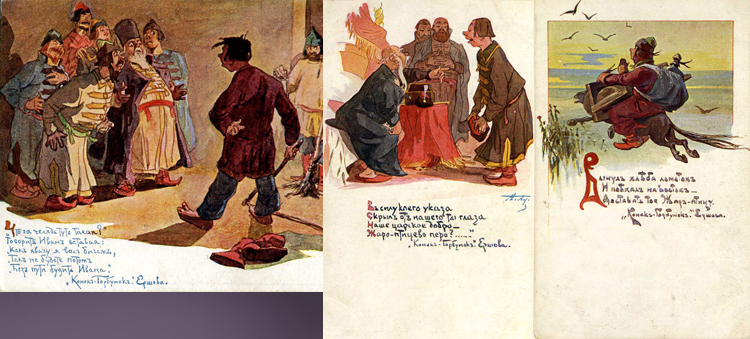 Что за челядь тутъ такая?
Говоритъ Иванъ вставая:
Какъ хвачу я васъ бичемъ,
Такъ не будете потомъ
Безъ пути будить Ивана."
„Конекъ-Горбунокъ". Ершова.
Въ силу коего указа
Скрылъ отъ нашего ты глаза
Наше царское добро—
Жаро-птицево перо?.....
„Конекъ-Горбунокъ" Ершова.
Вынулъ хлѣба ломотокъ
И поѣхалъ на востокъ—
Доставать тое Жаръ-птицу.
„Конекъ-Горбунокъ" Ершова.